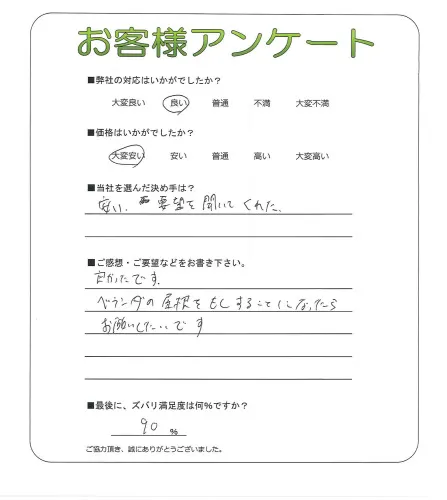 お客様アンケート
■弊社の対応はいかがでしたか？
大変良い 良い 普通 不満 大変不満
■価格はいかがでしたか？
大変安い 安い 普通 高い 大変高い
■当社を選んだ決め手は？
安い. 要望を聞いてくれた.
■ご感想・ご要望などをお書き下さい。
良かったです.
ベランダの屋根をもしすることになったら
お願いしたいです
■最後に、ズバリ満足度は何%ですか？
90 %
ご協力頂き、誠にありがとうございました。